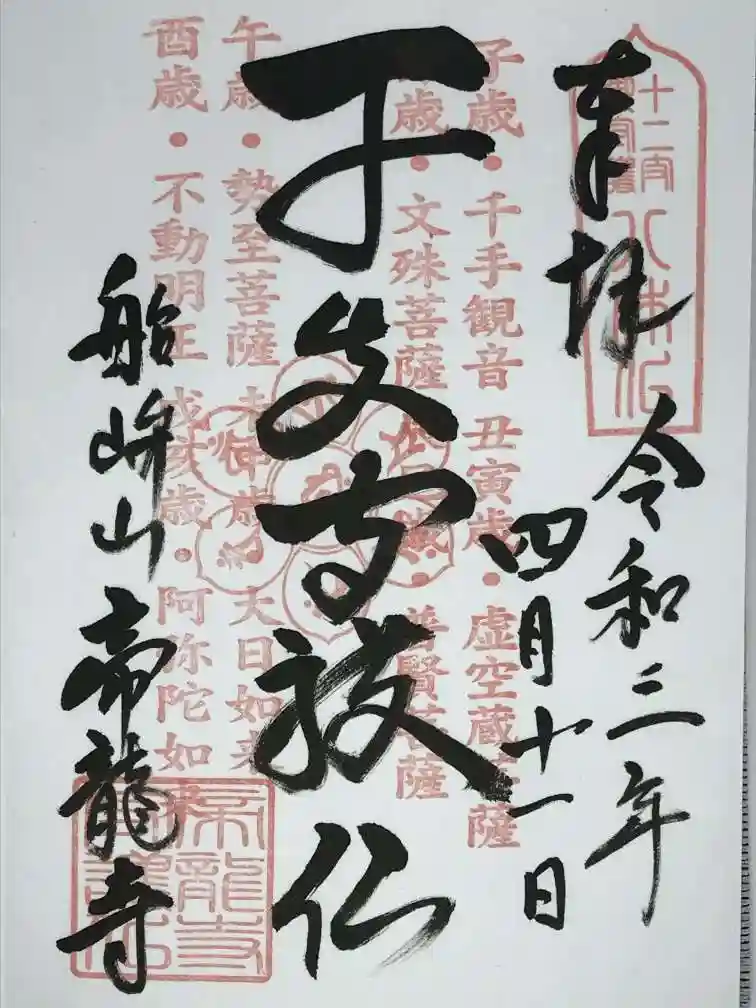 奉拝
令和三年
四月十一日
干支守護仏
船峅山 帝龍寺
子歳・千手観音 丑寅歳・虚空蔵菩薩
卯歳・文殊菩薩 辰巳歳・普賢菩薩
午歳・勢至菩薩 未申歳・大日如来
酉歳・不動明王 戌亥歳・阿弥陀如来
十二支
守護
八体仏
帝龍寺